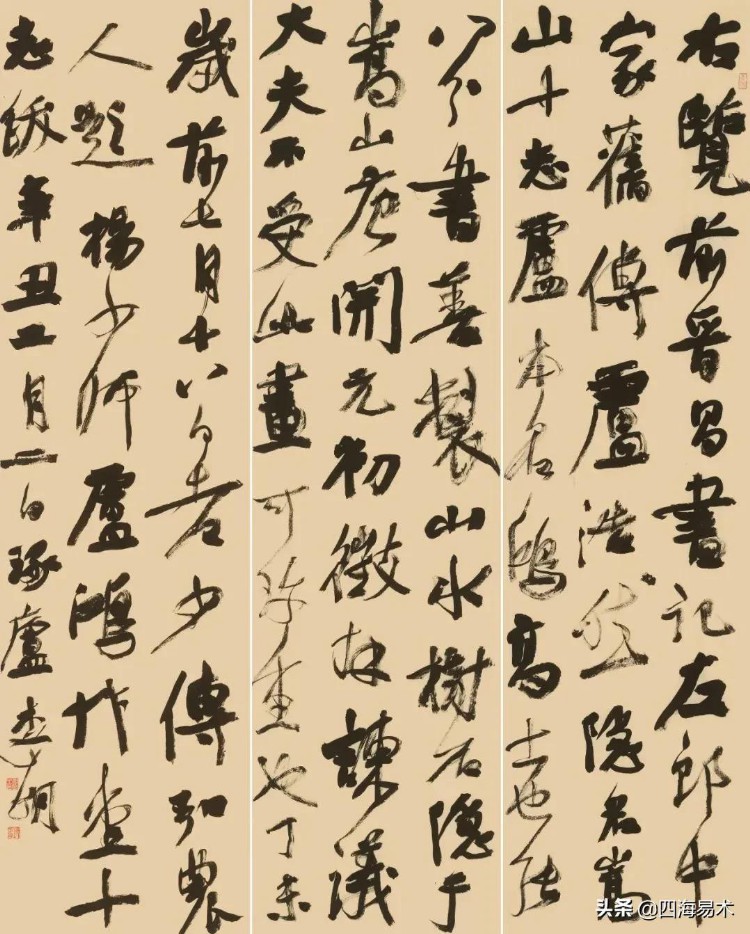 右覽前晉昌書記左郎中
家舊傳盧浩然隱居嵩
山十志盧本名鴻高士也能
八分書善製山水樹石隱于
嵩山唐開元初徵拜諫議
大夫不受此畫可珍重也丁未
歲前七月十八日老少傅弘農
人題楊少師盧鴻草堂十
志跋辛丑月二日琢廬
头条 @四海易术